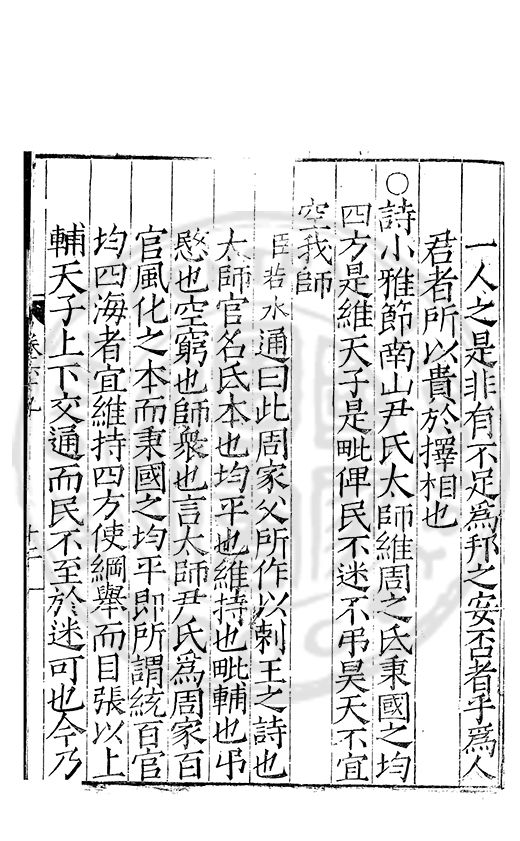 一人之是非有不足爲邦之安否者乎爲人
君者所以貴於擇相也
○詩小雅節南山尹氏太師維周之氐秉國之均
四方是維天子是毗俾民不迷不弔昊天不宜
空我師
臣若水通曰此周家父所作以刺王之詩也
太師官名氐本也均平也維持也毗輔也弔
愍也空窮也師衆也言太師尹氏爲周家百
官風化之本而秉國之均平即所謂統百官
均四海者宜維持四方使綱舉而目張以上
輔天子上下交通而民不至於迷可也今乃
卷六十九